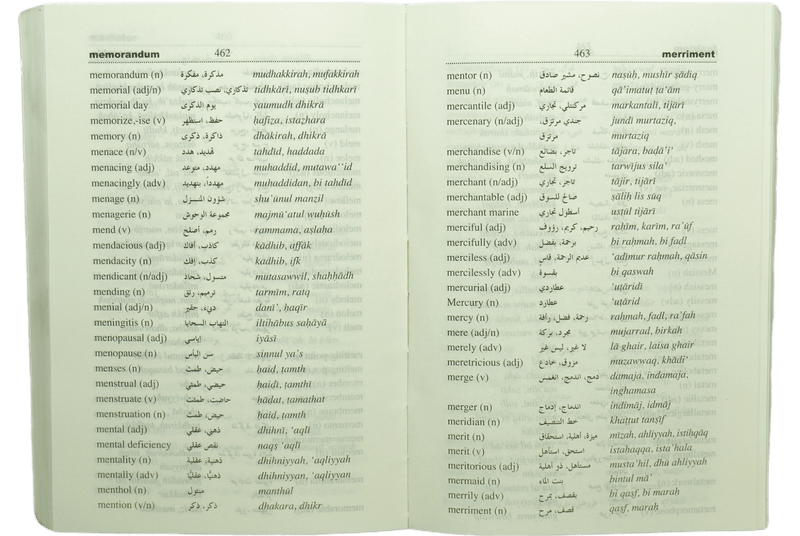 memorandum 462
memorandum (n) مذكرة، مفكرة mudhakkirah, mufakkirah
memorial (adj/n) تذكاري، نصب تذكاري tidhkārī, nuṣub tidhkarī
memorial day يوم الذكرى yaumudh dhikrā
memorize,-ise (v) حفظ، استظهر ḥafiẓa, istaẓhara
memory (n) ذاكرة، ذكرى dhākirah, dhikrā
menace (n/v) تهديد، هدد tahdīd, haddada
menacing (adj) مهدد، متوعد muhaddid, mutawa''id
menacingly (adv) مهدداً، بتهديد muhaddidan, bi tahdīd
menage (n) شؤون المنزل shu'ūnul manzil
menagerie (n) مجموعة الوحوش majmū'atul wuḥūsh
mend (v) رمم، أصلح rammama, aṣlaḥa
mendacious (adj) كاذب، أفاك kādhib, affāk
mendacity (n) كذب، إفك kadhib, ifk
mendicant (n/adj) متسول، شحاذ mutasawwil, shaḥḥādh
mending (n) ترميم، رتق tarmīm, ratq
menial (adj/n) دنيء، حقير danī', ḥaqīr
meningitis (n) التهاب السحايا iltihābus saḥāyā
menopausal (adj) إياسي iyāsī
menopause (n) سن اليأس sinnul ya's
menses (n) حيض، طمث ḥaid, ṭamth
menstrual (adj) حيضي، طمثي ḥaiḍī, ṭamthī
menstruate (v) حاضت، طمثت ḥāḍat, ṭamathat
menstruation (n) حيض، طمث ḥaiḍ, ṭamth
mental (adj) ذهني، عقلي dhihnī, 'aqlī
mental deficiency نقص عقلي naqṣ 'aqlī
mentality (n) ذهنية، عقلية dhihniyyah, 'aqliyyah
mentally (adv) ذهنياً، عقلياً dhihniyyan, 'aqliyyan
menthol (n) منثول manthūl
mention (v/n) ذكر، ذكر dhakara, dhikr
463 merriment
mentor (n) نصوح، مشير صادق naṣūḥ, mushīr ṣādiq
menu (n) قائمة الطعام qā'imatuṭ ṭa'ām
mercantile (adj) مركنتلي، تجاري markantalī, tijārī
mercenary (n/adj) جندي مرتزق، jundī murtaziq,
مرتزق murtaziq
merchandise (v/n) تاجر، بضائع tājara, baḍā'i'
merchandising (n) ترويج السلع tarwījus sila'
merchant (n/adj) تاجر، تجاري tājir, tijārī
merchantable (adj) صالح للسوق ṣāliḥ lis sūq
merchant marine أسطول تجاري usṭūl tijārī
merciful (adj) رحيم، كريم، رؤوف raḥīm, karīm, ra'ūf
mercifully (adv) برحمة، بفضل bi raḥmah, bi faḍl
merciless (adj) عديم الرحمة، قاس 'adīmur raḥmah, qāsin
mercilessly (adv) بقسوة bi qaswah
mercurial (adj) عطاردي 'uṭāridī
Mercury (n) عطارد 'uṭārid
mercy (n) رحمة، فضل، رأفة raḥmah, faḍl, ra'fah
mere (adj/n) مجرد، بركة mujarrad, birkah
merely (adv) لا غير، ليس غير lā ghair, laisa ghair
meretricious (adj) مزوق، خادع muzawwaq, khādi'
merge (v) دمج، اندمج، انغمس damaja, indamaja,
inghamasa
merger (n) اندماج، إدماج indimāj, idmāj
meridian (n) خط التنصيف khaṭṭut tanṣīf
merit (n) ميزة، أهلية، استحقاق mīzah, ahliyyah, istiḥqāq
merit (v) استحق، استأهل istaḥaqqa, ista'hala
meritorious (adj) مستأهل، ذو أهلية musta'hil, dhū ahliyyah
mermaid (n) بنت الماء bintul mā'
merrily (adv) بقصف، بمرح bi qaṣf, bi marah
merriment (n) قصف، مرح qaṣf, maraḥ